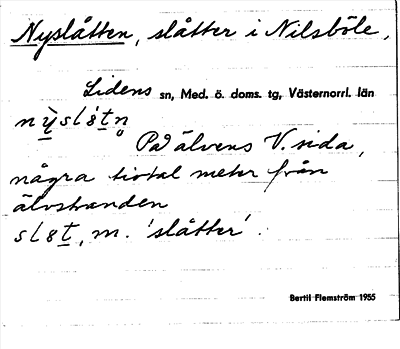 Nyslåtten, slåtter i Nilsböle,
Lidens sn, Med. ö. doms. tg, Västernorrl. län
På älvens V. sida,
några tiotal meter från
älvstranden
m. 'slåtter'.
Bertil Flemström 1955